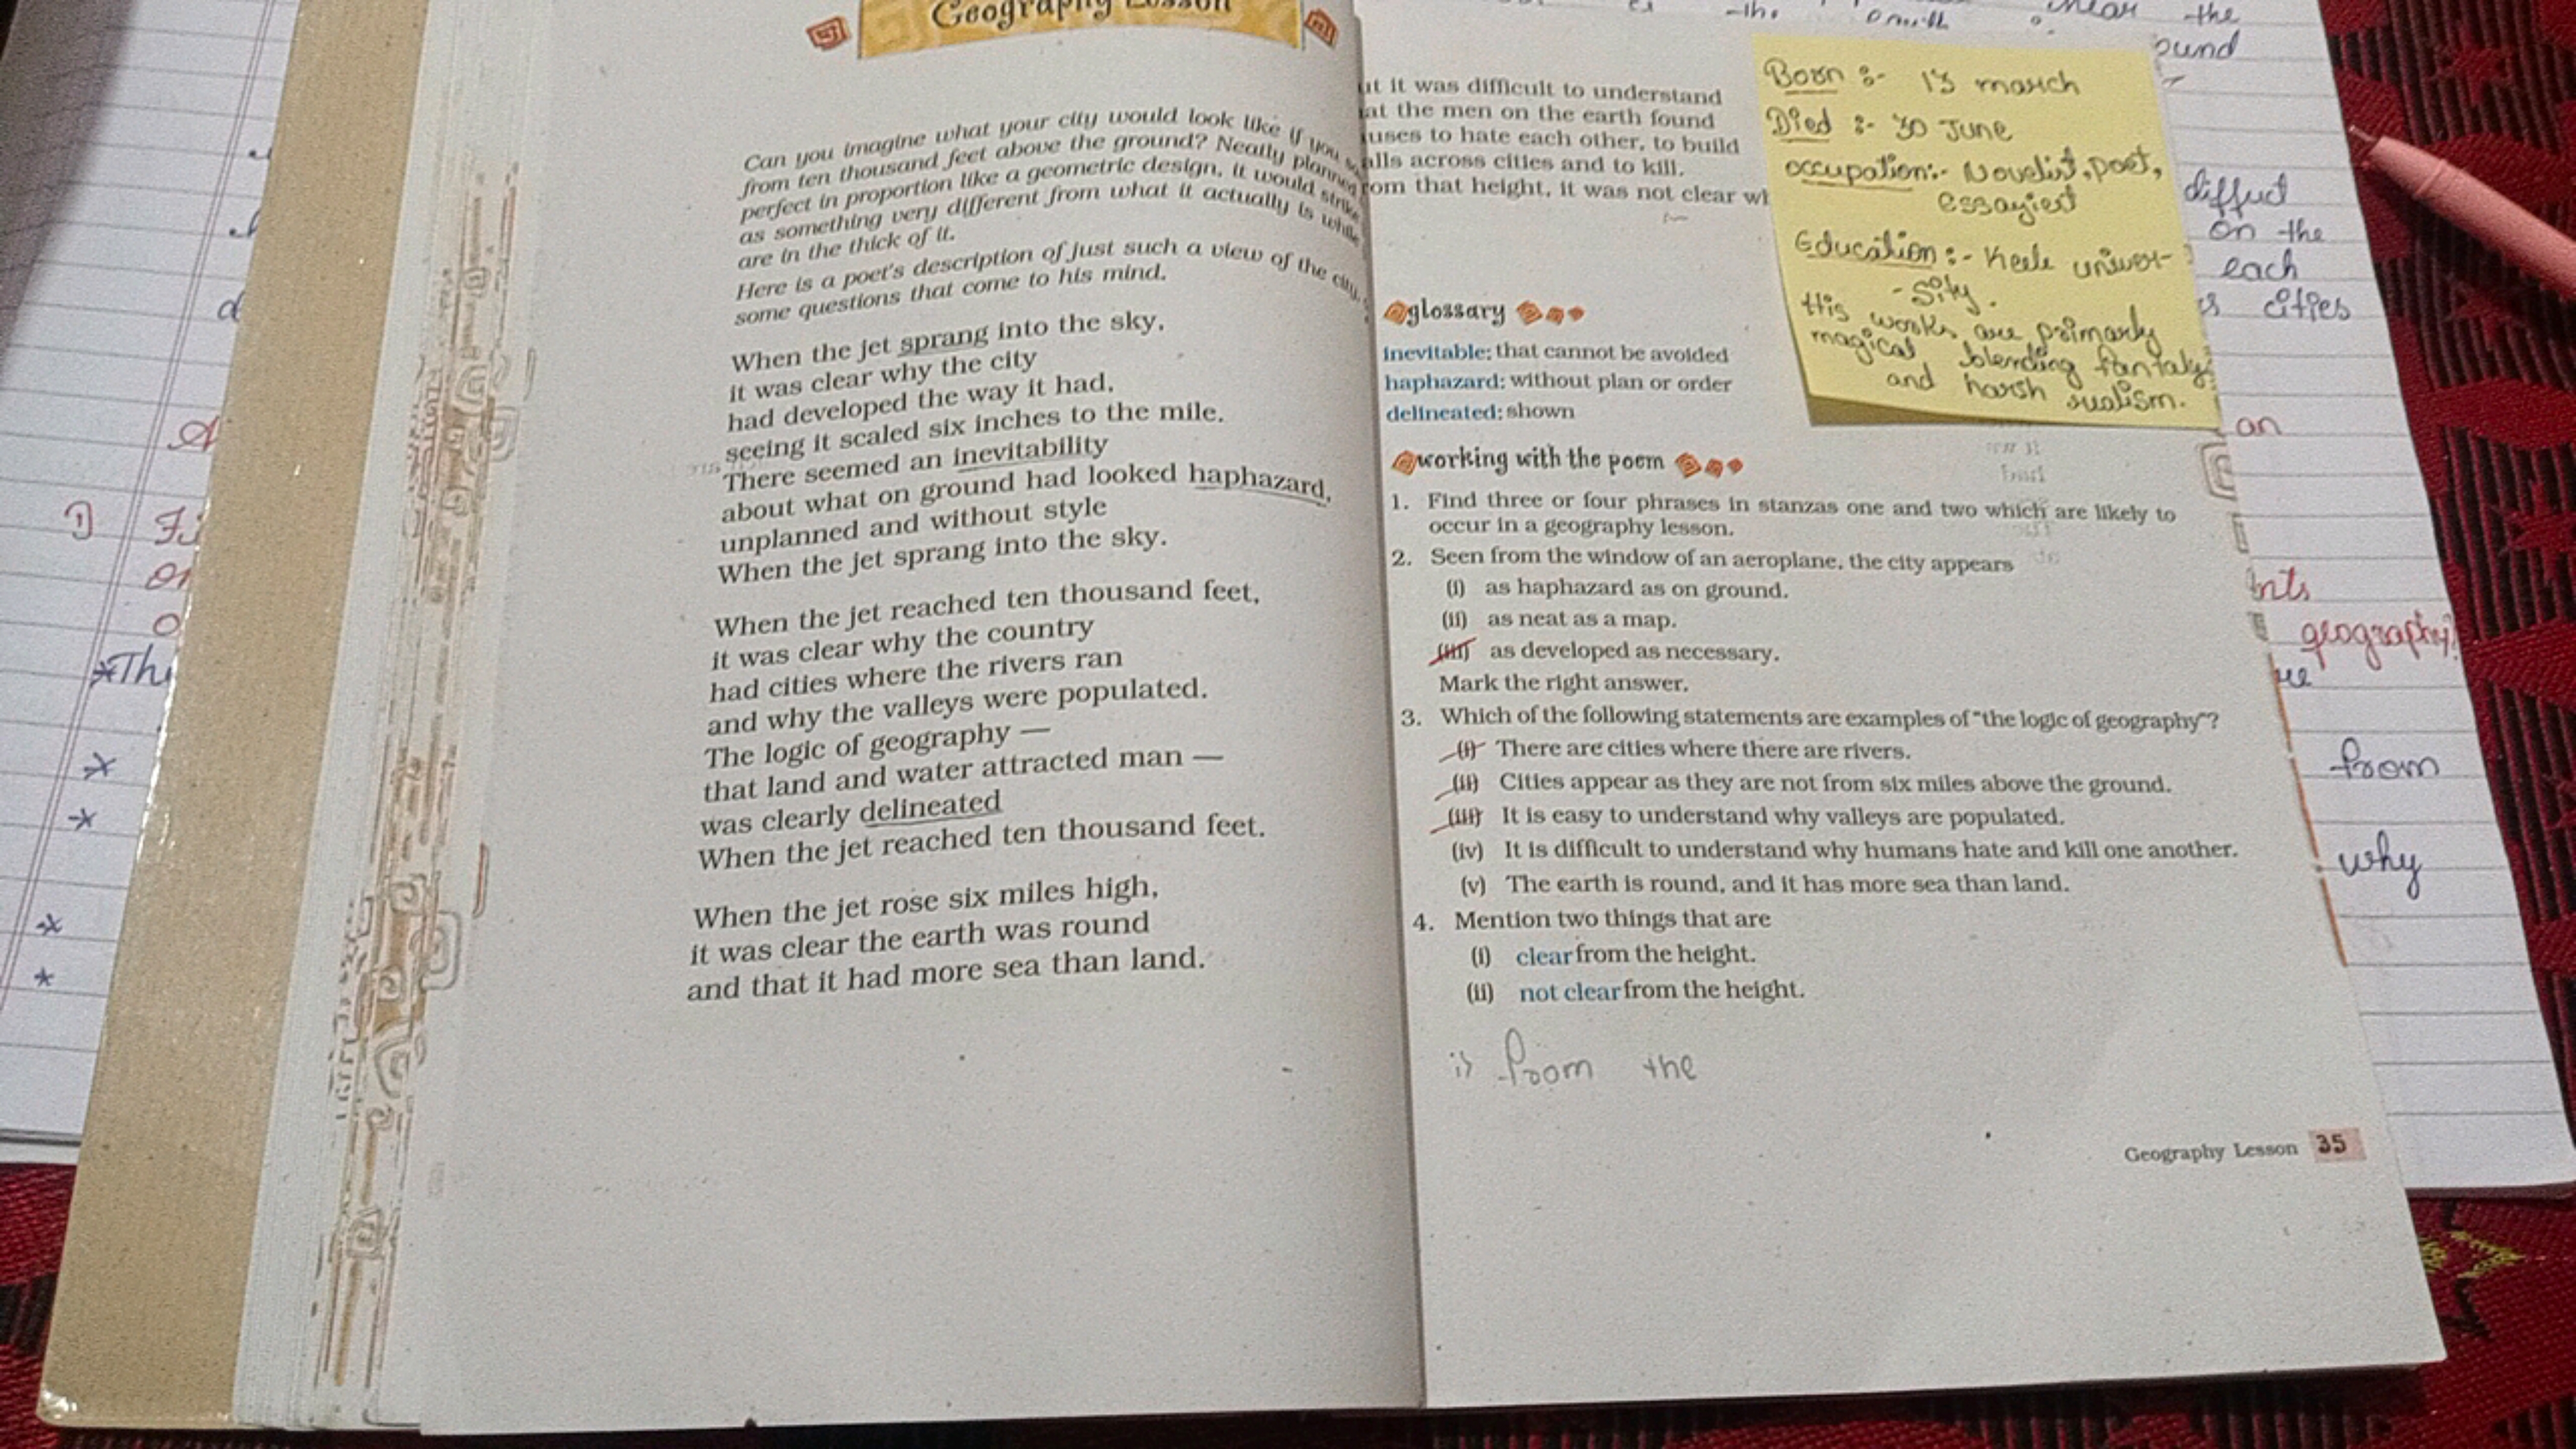 Geography Lesson
Can you imagine what your city would look like if you
from ten thousand feet above the ground? Neatly planned
perfect in proportion like a geometric design, it would strike
as something very different from what it actually is while
are in the thick of it.
Here is a poet's description of just such a view of the city,
some questions that come to his mind.
When the jet sprang into the sky,
it was clear why the city
had developed the way it had,
seeing it scaled six inches to the mile.
There seemed an inevitability
about what on ground had looked haphazard,
unplanned and without style
When the jet sprang into the sky.
When the jet reached ten thousand feet,
it was clear why the country
had cities where the rivers ran
and why the valleys were populated.
The logic of geography —
that land and water attracted man —
was clearly delineated
When the jet reached ten thousand feet.
When the jet rose six miles high,
it was clear the earth was round
and that it had more sea than land.
ut it was difficult to understand
at the men on the earth found
uses to hate each other, to build
alls across cities and to kill.
rom that height, it was not clear wh
glossary
inevitable: that cannot be avoided
haphazard: without plan or order
delineated: shown
working with the poem
1. Find three or four phrases in stanzas one and two which are likely to
occur in a geography lesson.
2. Seen from the window of an aeroplane, the city appears
(i) as haphazard as on ground.
(ii) as neat as a map.
(iii) as developed as necessary.
Mark the right answer.
3. Which of the following statements are examples of "the logic of geography"?
(i) There are cities where there are rivers.
(ii) Cities appear as they are not from six miles above the ground.
(iii) It is easy to understand why valleys are populated.
(iv) It is difficult to understand why humans hate and kill one another.
(v) The earth is round, and it has more sea than land.
4. Mention two things that are
(i) clear from the height.
(ii) not clear from the height.
i) from the
Geography Lesson 35
Born :- 13 march
Died :- 30 June
occupation:- Novelist, poet,
essayiest
Education :- Keele univer-
-sity.
His works are primarly
magical blending fantaly
and harsh realism.
the
ound
diffect
on the
each
cities
an
nts
geography?
from
why
1) Fi
*Thi